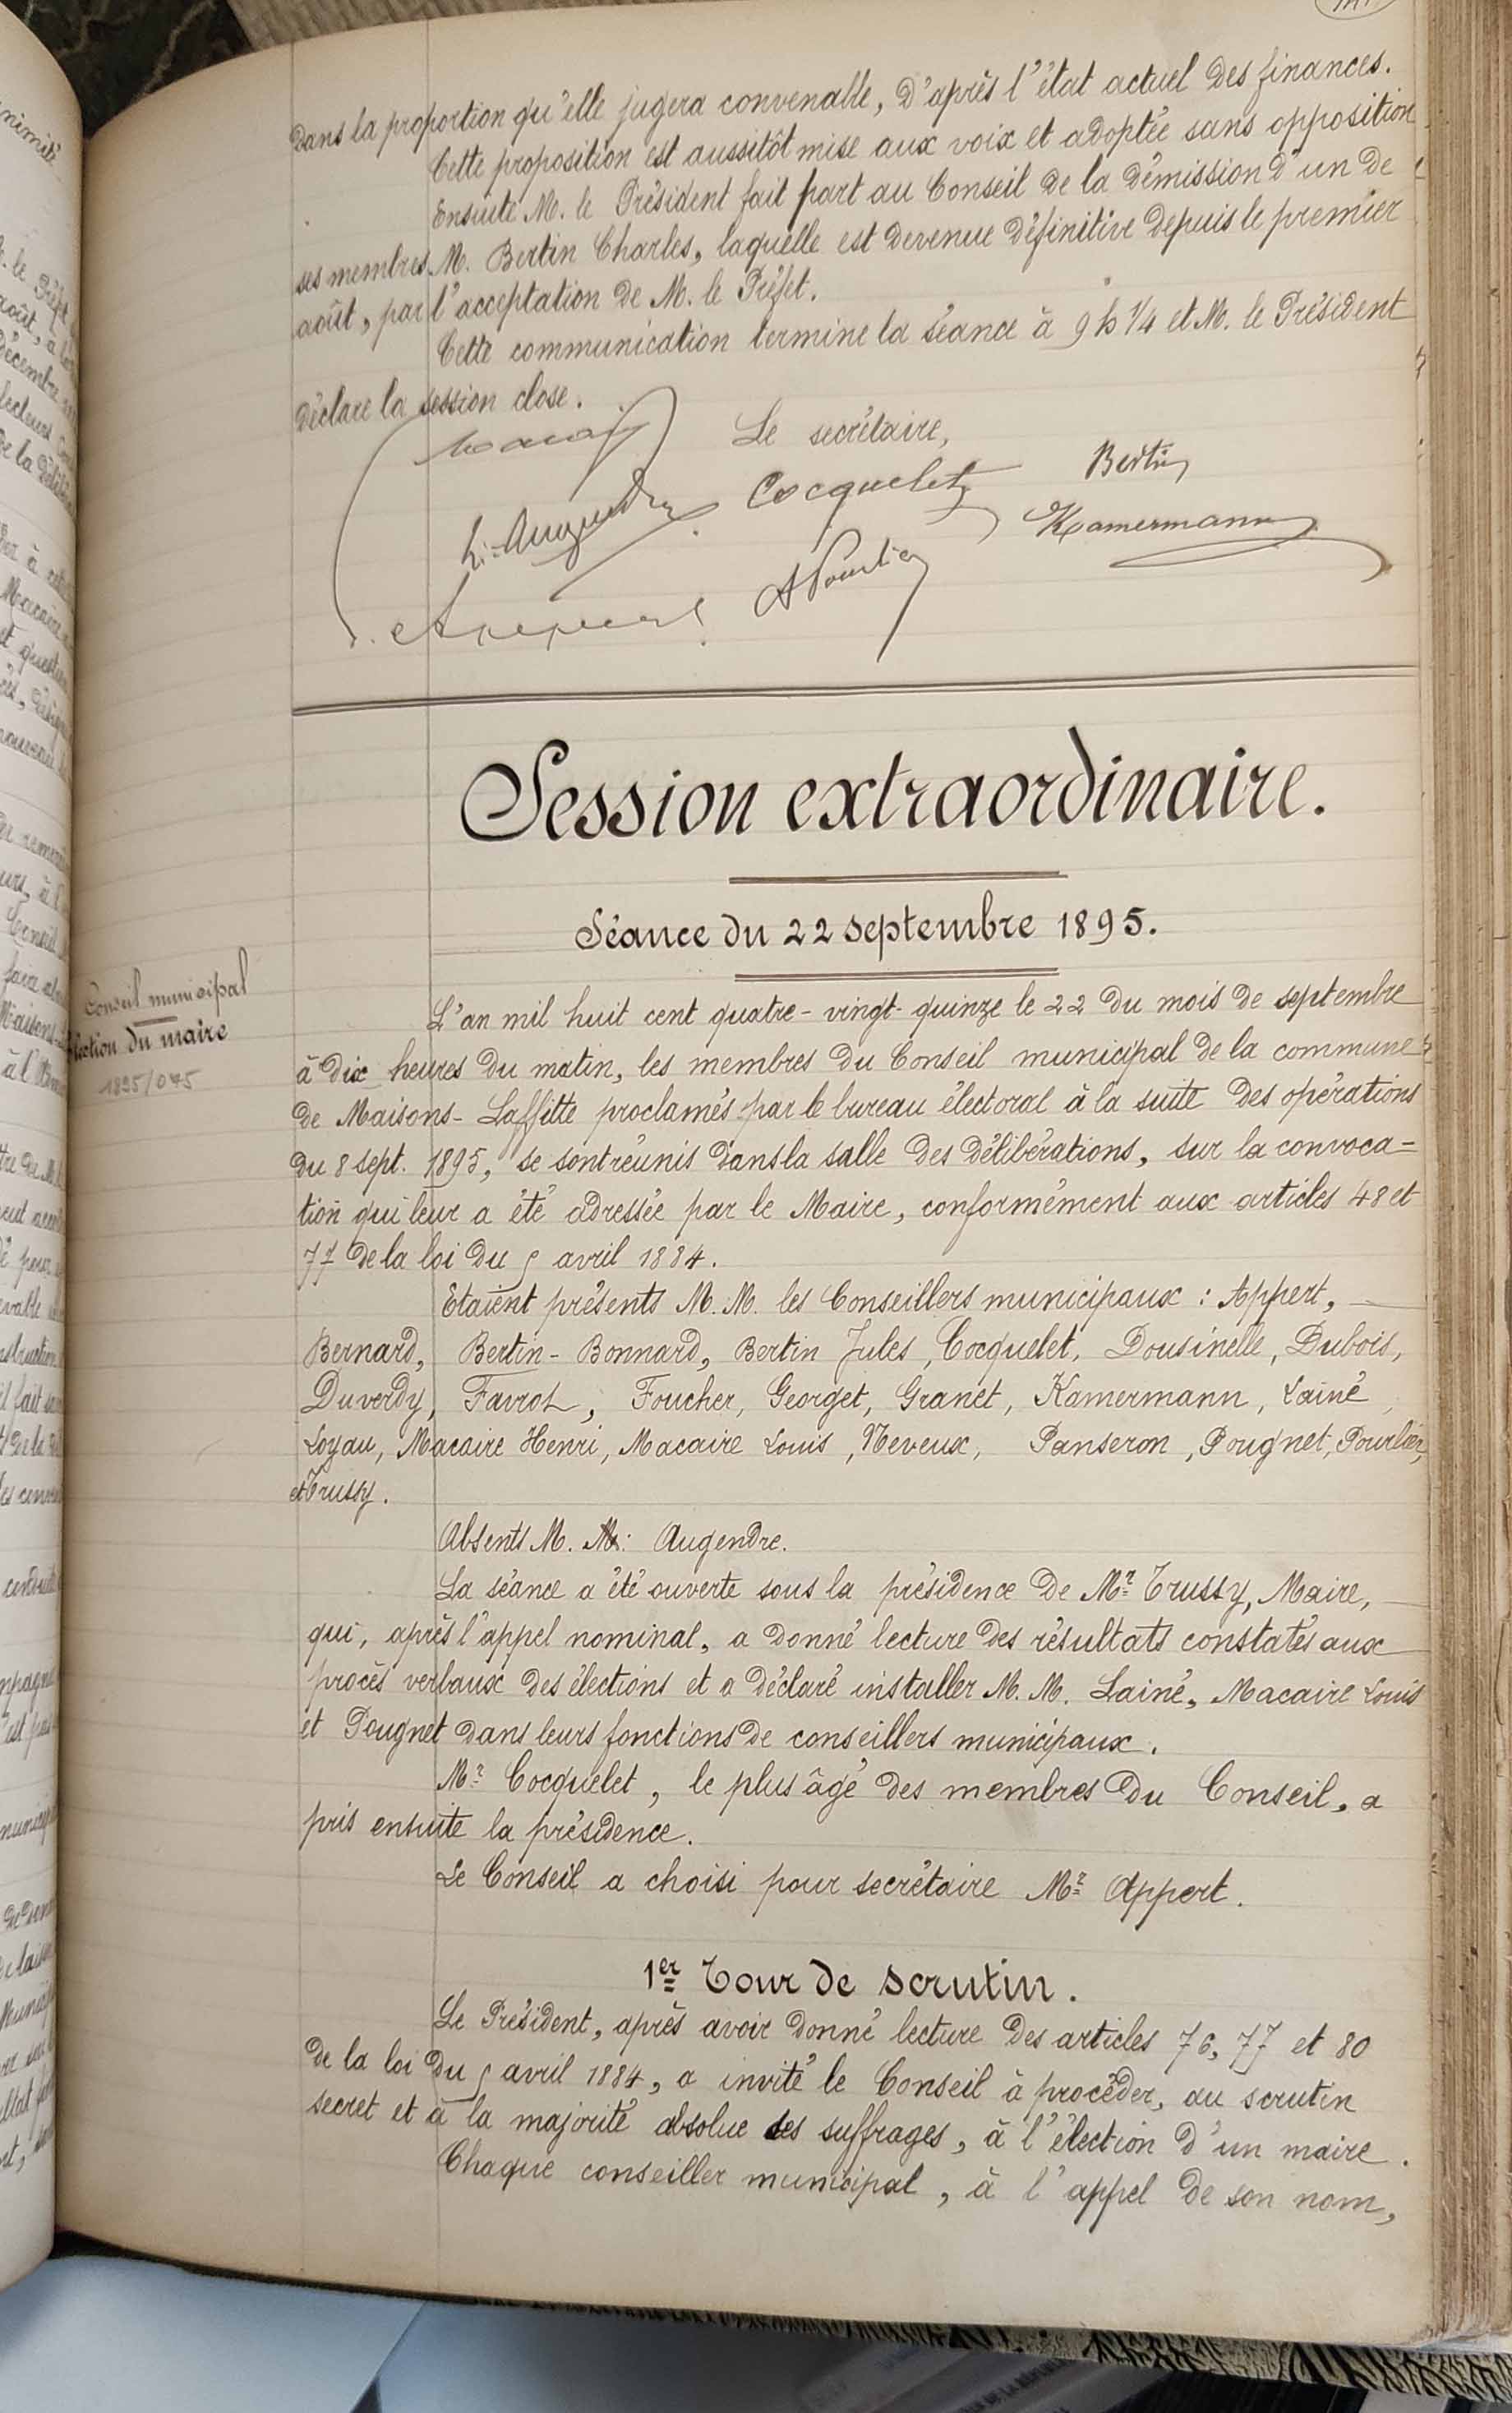 dans la proportion qu'elle jugera convenable, d'après l'état actuel des finances.
Cette proposition est aussitôt mise aux voix et adoptée sans opposition
Ensuite M. le Président fait part au Conseil de la démission d'un de
ses membres M. Bertin Charles, laquelle est devenue définitive depuis le premier
août, par l'acceptation de M. le Préfet.
Cette communication termine la séance à 9 h 1/4 et M. le Président
déclare la session close.
Le secrétaire,
Bertin
Cocquelet
L. Augendre
Kamermann
Session extraordinaire.
Séance du 22 septembre 1895.
Conseil municipal
élection du maire
1895/045
L'an mil huit cent quatre-vingt-quinze le 22 du mois de septembre
à dix heures du matin, les membres du Conseil municipal de la commune
de Maisons-Laffitte proclamés par le bureau électoral à la suite des opérations
du 8 sept. 1895, se sont réunis dans la salle des délibérations, sur la convoca=
tion qui leur a été adressée par le Maire, conformément aux articles 48 et
77 de la loi du 5 avril 1884.
Etaient présents M. M. les Conseillers municipaux : Appert,
Bernard, Bertin-Bonnard, Bertin Jules, Cocquelet, Dousinelle, Dubois,
Duverdy, Favrot, Foucher, Georget, Granet, Kamermann, Lainé,
Loyau, Macaire Henri, Macaire Louis, Neveux, Panseron, Pougnet, Pourlier,
et Trussy.
Absents M. M.: Augendre.
La séance a été ouverte sous la présidence de Mr Trussy, Maire,
qui, après l'appel nominal, a donné lecture des résultats constatés aux
procès verbaux des élections et a déclaré installer M. M. Lainé, Macaire Louis
et Pougnet dans leurs fonctions de conseillers municipaux.
Mr Cocquelet, le plus âgé des membres du Conseil, a
pris ensuite la présidence.
Le Conseil a choisi pour secrétaire Mr Appert.
1er Tour de scrutin.
Le Président, après avoir donné lecture des articles 76, 77 et 80
de la loi du 5 avril 1884, a invité le Conseil à procéder, au scrutin
secret et à la majorité absolue des suffrages, à l'élection d'un maire.
Chaque conseiller municipal, à l'appel de son nom,